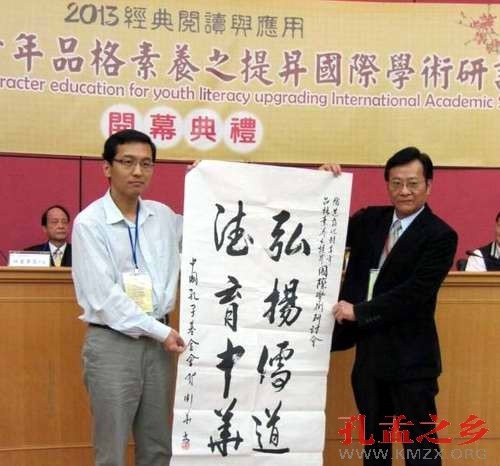 2013經典閱讀與應用
年品格素養之提昇國際學術研
racter education for youth literacy upgrading International Academic
開幕典禮
品格素養之提昇國際學術研討會
弘揚儒道
德育中華
中國孔子基金會
孔孟之乡
WWW.KMZX.ORG